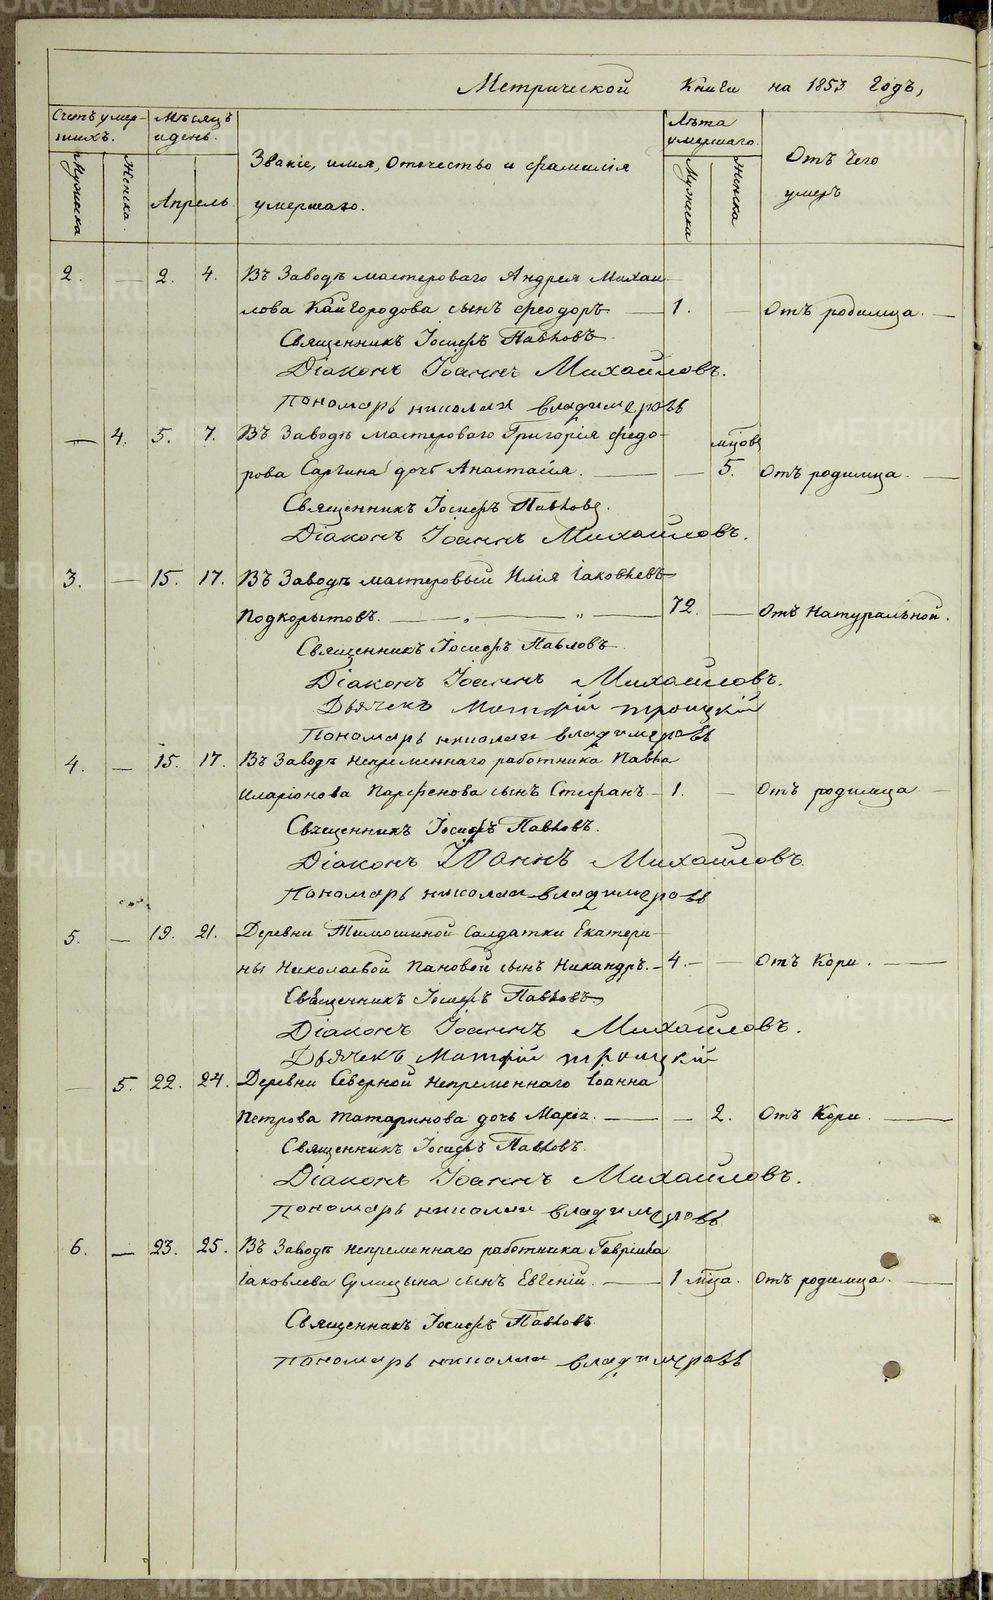 Метрической Книги на 1853 годъ,
Счетъ умер-
шихъ.
Мѣсяцъ
и день.
Званіе, имя, отечество и фамилія
умершаго.
Лѣта
умершаго.
Отъ чего
умеръ
Мужска
Женска.
Апрель
Мужска
Женска
2. — 2. 4. Въ Заводѣ мастероваго Андрея Михаи
лова Кайгородова сынъ Феодоръ — 1. — Отъ родимца. —
Священникъ Іосифъ Павловъ
Діаконъ Іоаннъ Михайловъ.
Пономарь николаи владимеровъ
— 4. 5. 7. Въ Заводѣ мастероваго Григорія Федо-
рова Саргина дочь Анастасія. — — мцовъ 5. Отъ родимца. —
Священникъ Іосифъ Павловъ.
Діаконъ Іоаннъ Михайловъ.
3. — 15. 17. Въ Заводѣ мастеровый Илія Іаковлевъ
Подкорытовъ. — „ — „ — 72. — Отъ Натуральной.
Священникъ Іосифъ Павловъ
Діаконъ Іоаннъ Михайловъ.
Дьячекъ Матфій троицкій
Пономарь николаи владимеровъ
4. — 15. 17. Въ Заводѣ непременнаго работника Павла
Иларіонова Парфенова сынъ Стефанъ — 1. — Отъ родимца —
Священникъ Іосифъ Павловъ.
Діаконъ Іоаннъ Михайловъ
Пономарь николаи владимеровъ
5. — 19. 21. Деревни Тимошиной солдатки Екатери-
ны Николаевой Пановой сынъ Никандръ. — 4. — — Отъ Кори. —
Священникъ Іосифъ Павловъ
Діаконъ Іоаннъ Михайловъ.
Дьячекъ Матфій троицкій
— 5. 22. 24. Деревни Северной непременнаго Іоанна
Петрова Татаринова дочь Марія. — — 2. Отъ Кори. —
Священникъ Іосифъ Павловъ.
Діаконъ Іоаннъ Михайловъ.
Пономарь николаи владимеровъ
6. — 23. 25. Въ Заводѣ непременнаго работника Гавріила
Іаковлева сынъ Евгеній. — 1 мца. Отъ родимца. —
Священникъ Іосифъ Павловъ
Пономарь николаи владимеровъ
METRIKI.GASO-URAL.RU